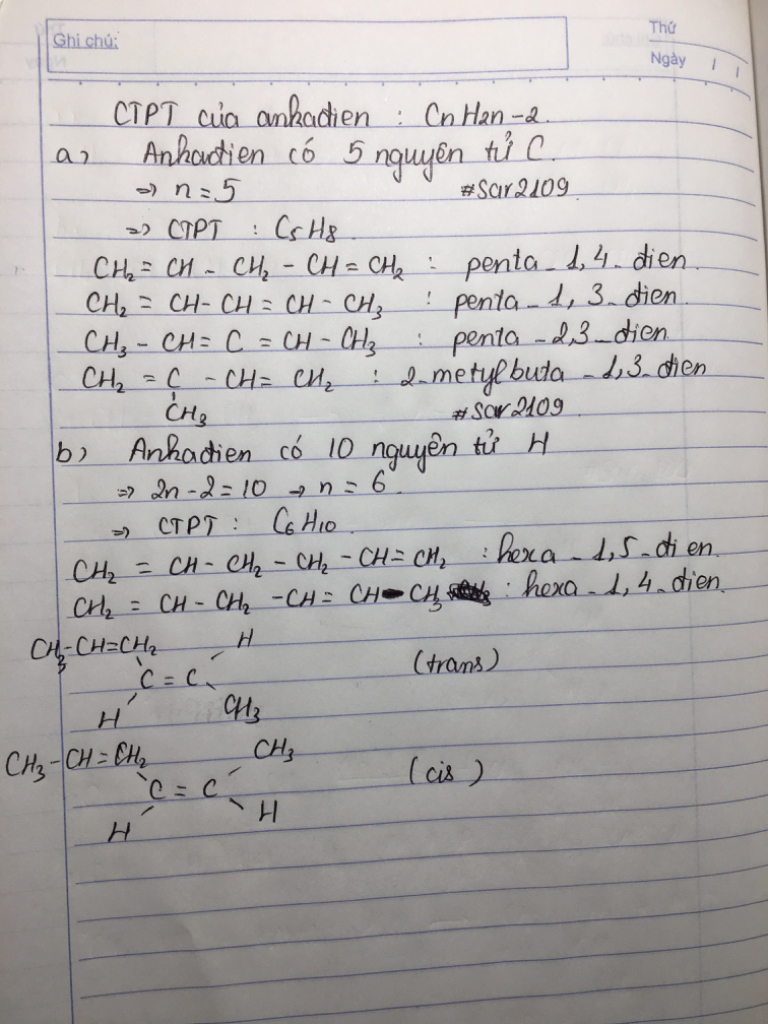 Ghi chú:
Thứ
Ngày / /
CTPT của ankadien : CnH2n-2.
a) Ankadien có 5 nguyên tử C.
=> n = 5 #Sar2109
=> CTPT : C5H8
CH2 = CH - CH2 - CH = CH2 : penta-1,4-dien.
CH2 = CH - CH = CH - CH3 : penta-1,3-dien.
CH3 - CH = C = CH - CH3 : penta-2,3-dien
CH2 = C - CH = CH2 : 2-metylbuta-1,3-dien
CH3 #Sar2109
b) Ankadien có 10 nguyên tử H
=> 2n-2 = 10 -> n = 6
=> CTPT : C6H10
CH2 = CH - CH2 - CH2 - CH = CH2 : hexa-1,5-dien.
CH2 = CH - CH2 - CH = CH - CH3 : hexa-1,4-dien.
CH3-CH=CH2 H
C = C (trans)
H CH3
CH3-CH=CH2 CH3
C = C (cis)
H H